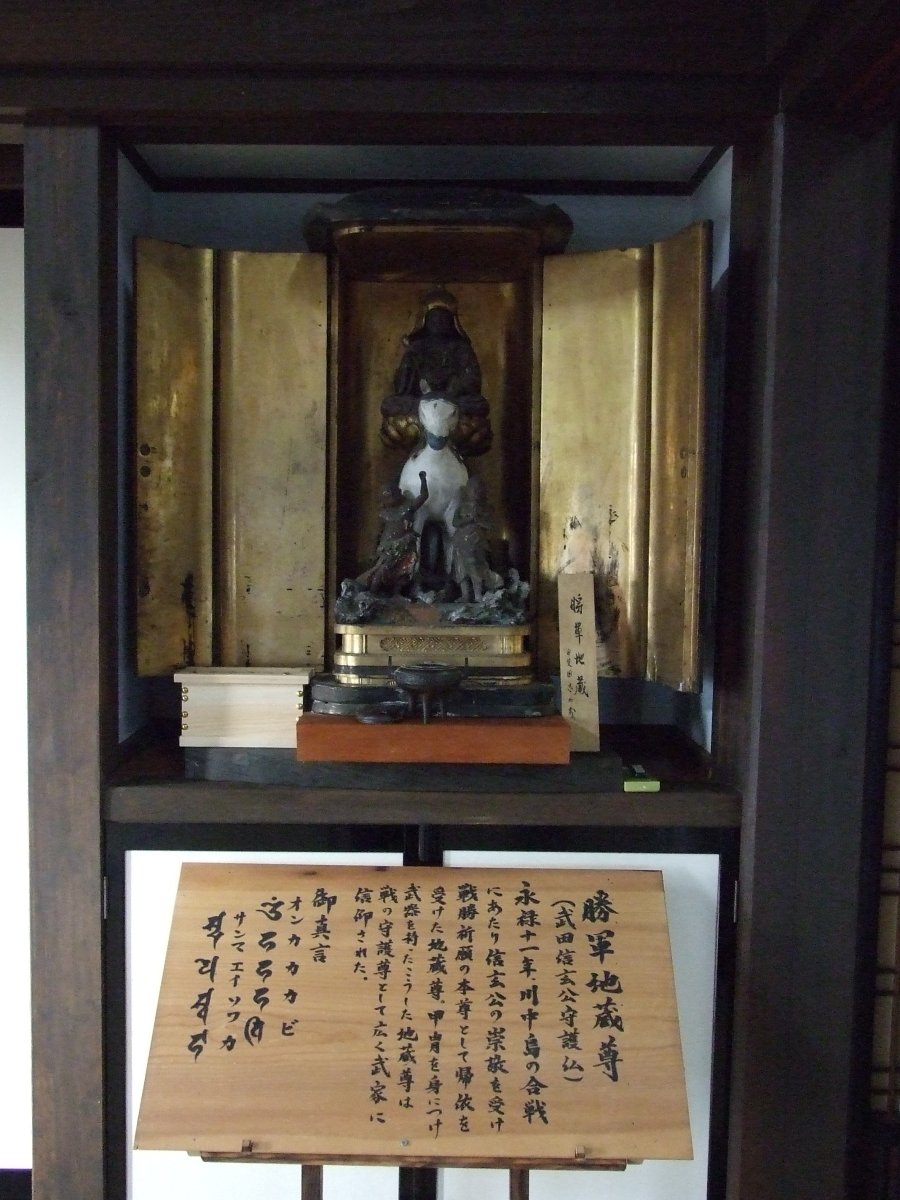 勝軍地蔵
勝軍地蔵尊
(武田信玄公守護仏)
永禄十一年川中島の合戦
にあたり信玄公の崇敬を受け
戦勝祈願の本尊として帰依を
受けた地蔵尊。甲冑を身につけ
武器を持ったこうした地蔵尊は
戦の守護尊として広く武家に
信仰された。
御真言
オンカカカビ
サンマエイソワカ